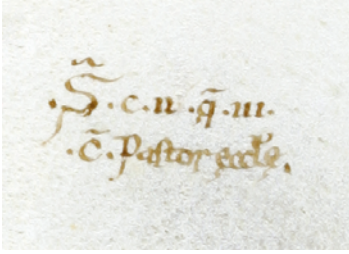 .S̃.c.ii.q̄.iii.
.c̄.Pastor eccle.